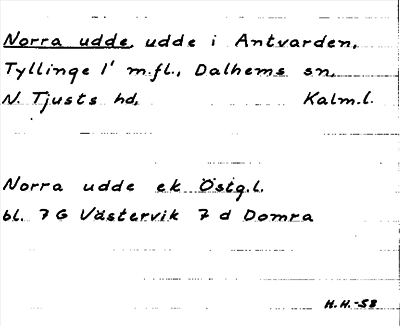 Norra udde, udde i Antvarden,
Tyllinge 1' m.fl., Dalhems sn,
N. Tjusts hd, Kalm.l.
Norra udde ek Östg.l.
bl. 7 G Västervik 7 d Domra
H.H.-58